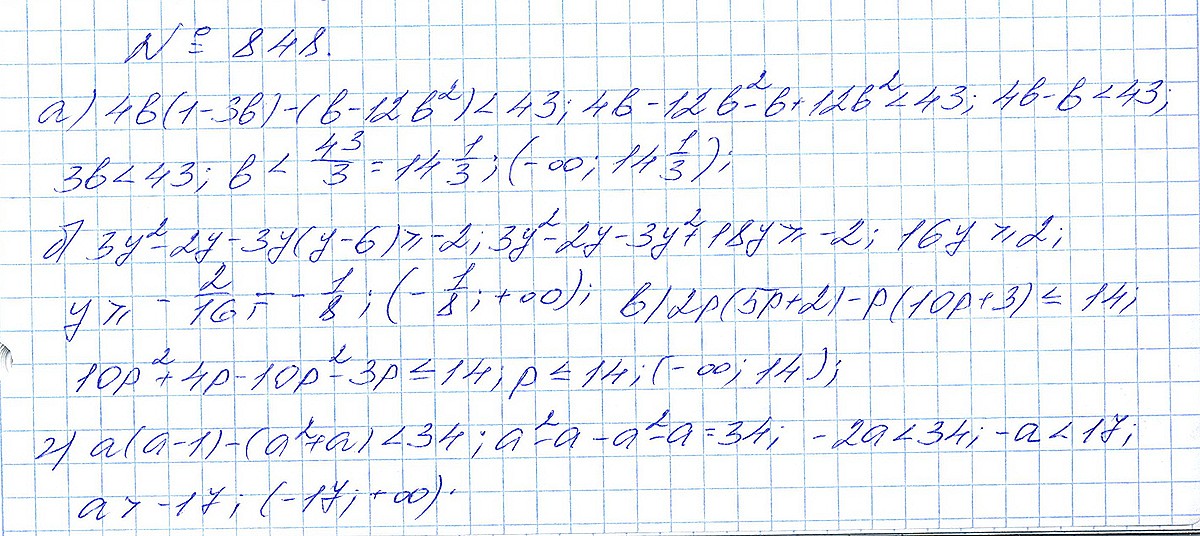 № 848.
а) 4b(1-3b)-(b-12b²)<43; 4b-12b²-b+12b²<43; 4b-b<43;
3b<43; b< 43/3 = 14 1/3; (-∞; 14 1/3);
б) 3y²-2y-3y(y-6)≥-2; 3y²-2y-3y²+18y≥-2; 16y≥2;
y≥ - 2/16 = - 1/8; (- 1/8; +∞); в) 2p(5p+2)-p(10p+3)≤14;
10p²+4p-10p²-3p≤14; p≤14; (-∞; 14);
г) a(a-1)-(a²+a)<34; a²-a-a²-a=34; -2a<34; -a<17;
a>-17; (-17; +∞).